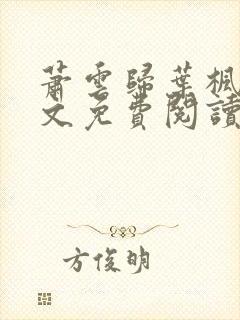 蕭雲歸葉楓
文免費閱讀
方俊明